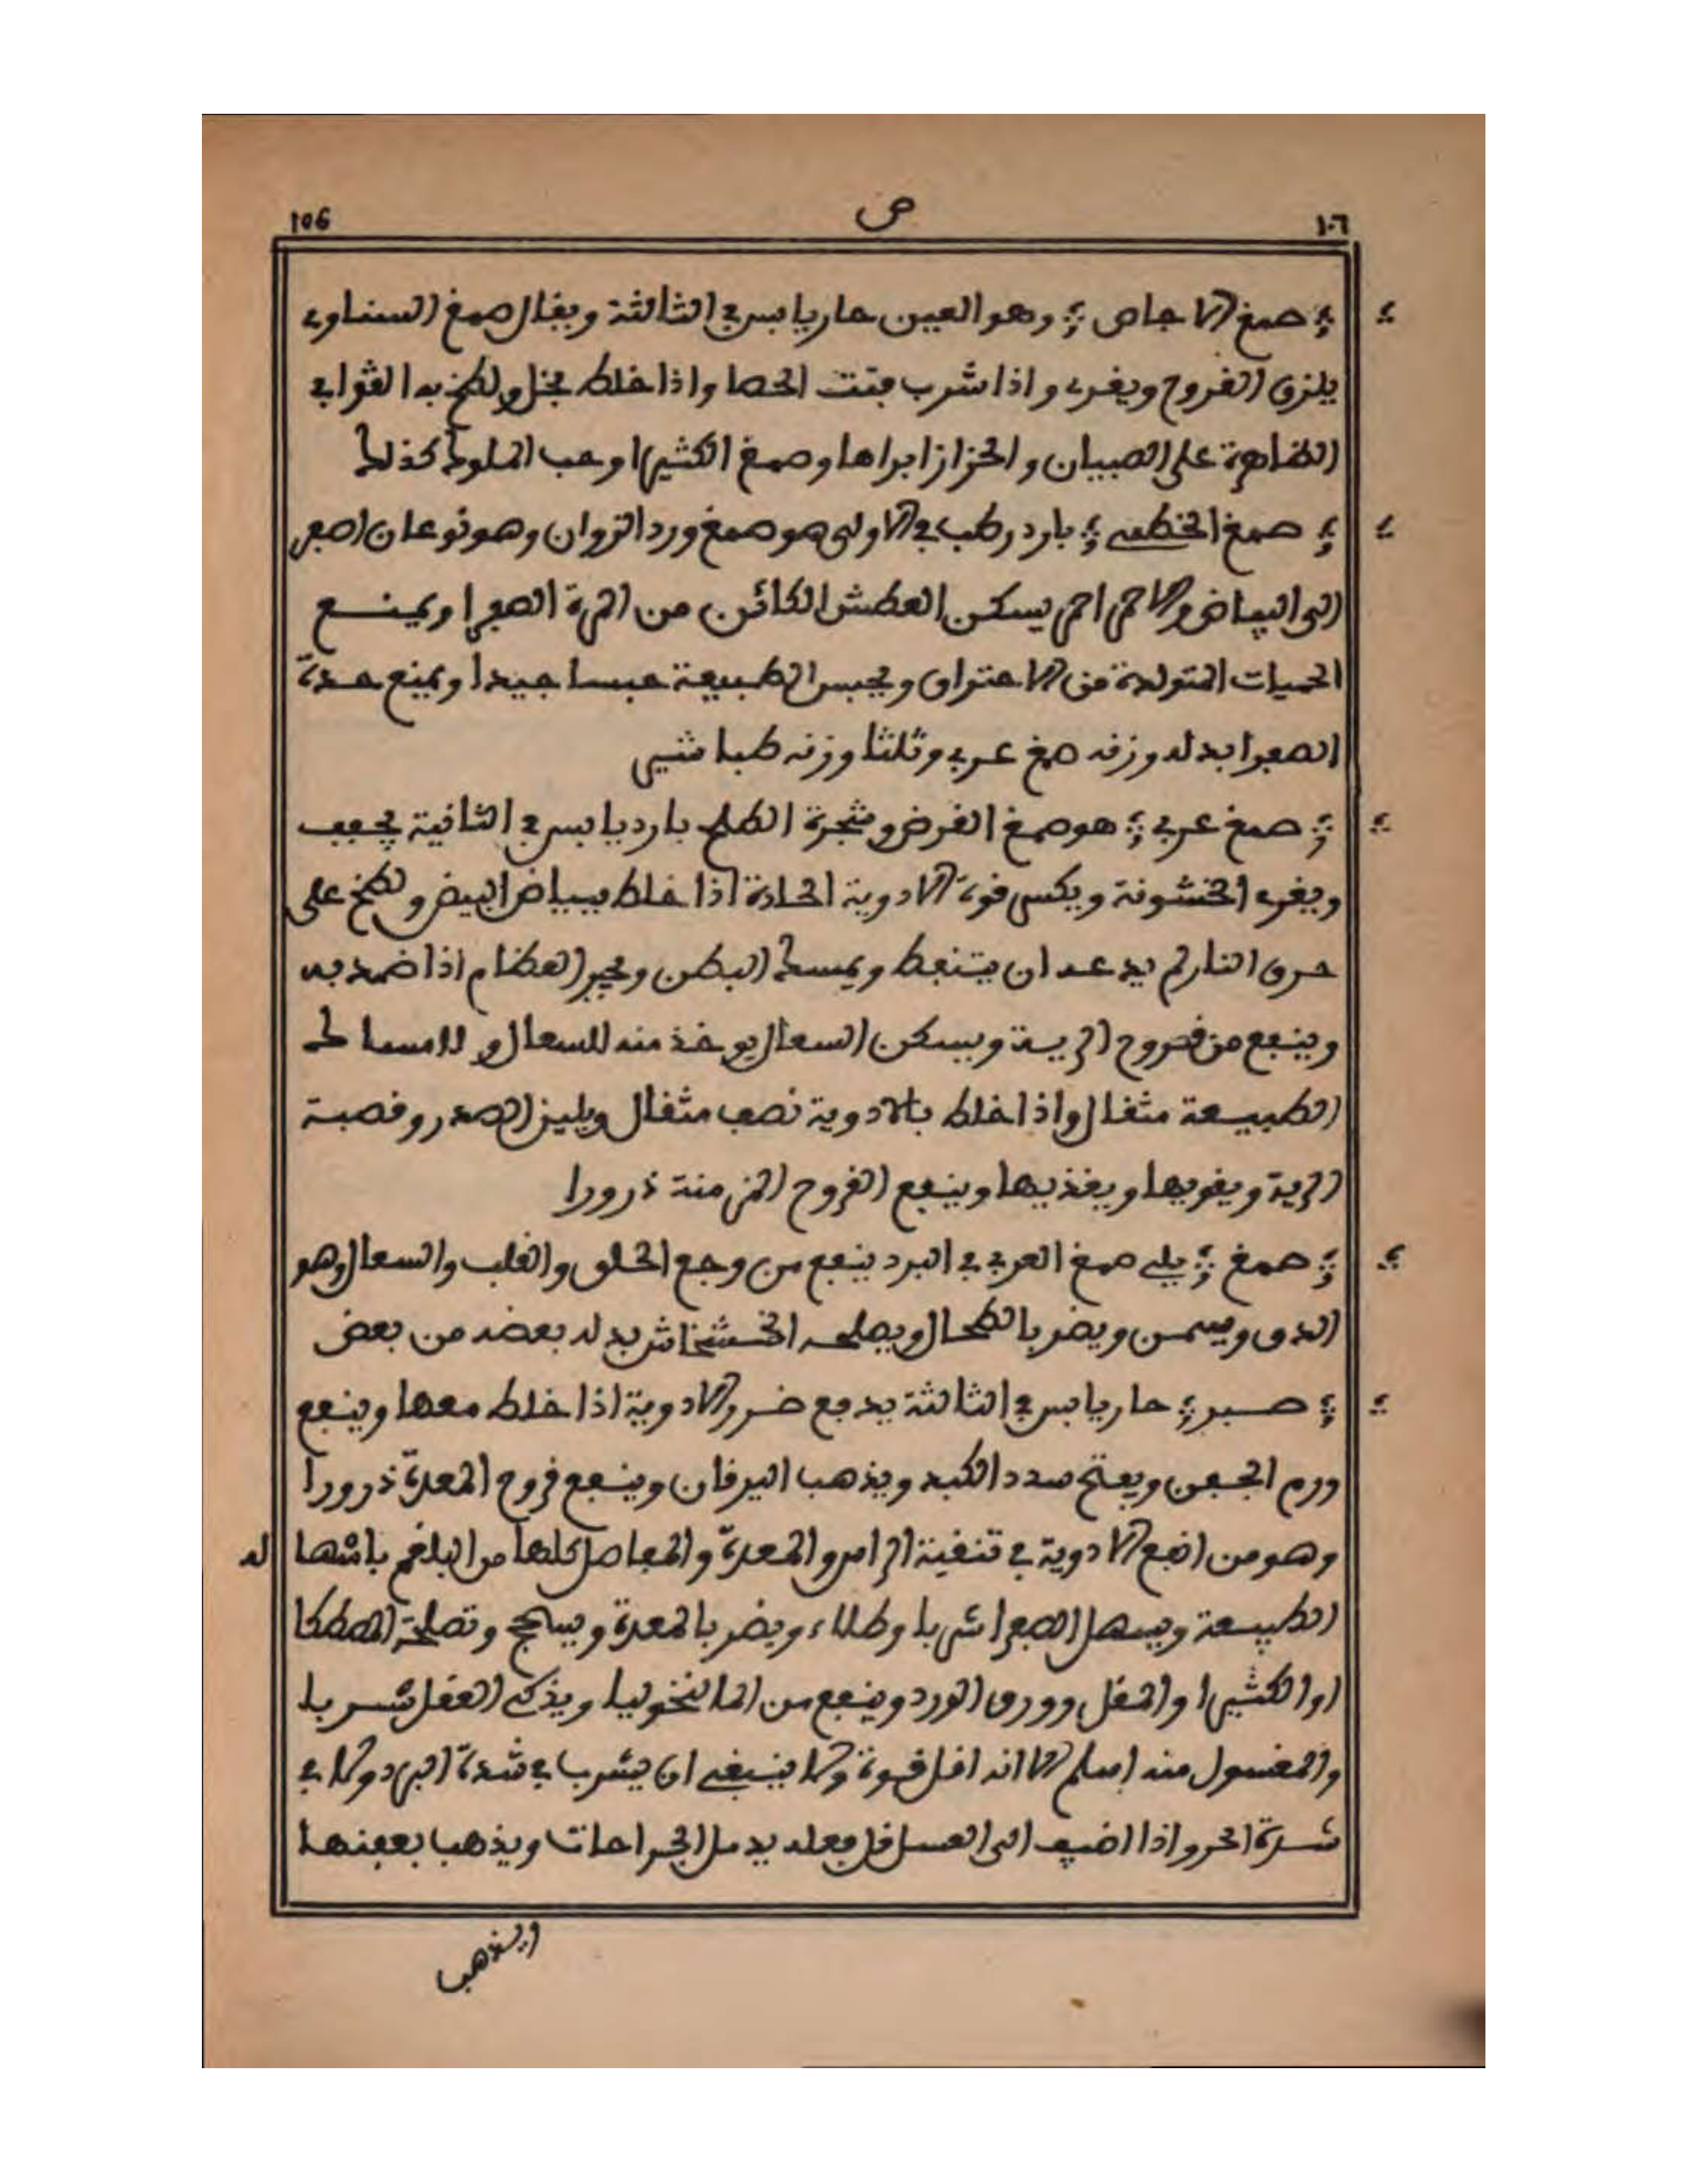 106 ص ١٠٦
؞ صمغ الاجاص ؞ وهو العين حار يابس في الثالثة ويقال صمغ السناوي
يلزق القروح ويغري واذا شرب فتت الحصا واذا خلط بخل ولطخ به القوابي
الظاهرة على الصبيان والحزاز ابراها وصمغ الكثيرا وحب الملوك كذلك
؞ صمغ الخطمي ؞ بارد رطب في الاولى هو صمغ ورد الزوان وهو نوعان اصفر
الى البياض والاحمر احمر يسكن العطش الكائن من المرة الصفرا ويمنع
الحميات المتولدة من الاحتراق ويحبس الطبيعة حبسا جيدا ويمنع حدة
الصفرا بدله وزنه صمغ عربي وثلثا وزنه طباشير
؞ صمغ عربي ؞ هو صمغ القرض وشجرة الطلح بارد يابس في الثانية يجفف
ويغري الخشونة ويكسر قوة الادوية الحادة اذا خلط ببياض البيض ولطخ على
حرق النار لم يدعه ان يتنفط ويمسك البطن ويجبر العظام اذا ضمد به
وينفع من قروح الرية ويسكن السعال يوخذ منه للسعال ولامساك
الطبيعة مثقال واذا خلط بالادوية نصف مثقال ويلين الصدر وقصبة
الرية ويقويها ويغذيها وينفع القروح المزمنة ذرورا
؞ صمغ ؞ يلي صمغ العربي في البرد ينفع من وجع الحلق والقلب والسعال وهو
الدق ويسمن ويضر بالطحال ويصلحه الخشخاش بدله بعضه من بعض
؞ صبر ؞ حار يابس في الثالثة يدفع ضرر الادوية اذا خلط معها وينفع
ورم الجفن ويفتح سدد الكبد ويذهب اليرقان وينفع قروح المعدة ذرورا
وهو من انفع الادوية في تنقية الراس والمعدة والمفاصل كلها من البلغم باسها له
الطبيعة ويسهل الصفرا شربا وطلاء ويضر بالمعدة ويسحج وتصلحه المصطكا
او الكثيرا والمقل وورق الورد وينفع من المالنخوليا ويذكي العقل شربا
والمغسول منه اسلم الا انه اقل قوة ولا ينبغي ان يشرب في شدة البرد ولا في
شدة الحر واذا اضيف الى العسل قل فعله يدمل الجراحات ويذهب بعفنها
ويذهب